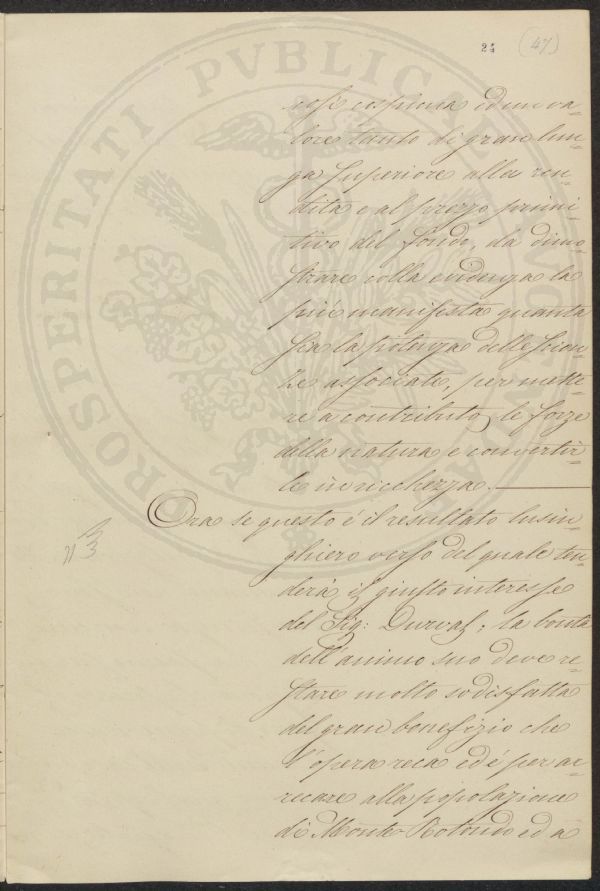 24 (47)
così cospicua ed un va-
lore tanto di gran lun-
ga superiore alla ren-
dita e al prezzo primi-
tivo del fondo, da dimo-
strare colla evidenza la
più manifesta quanta
sia la potenza delle scien-
ze associate, per mette-
re a contributo le forze
della natura e convertir-
le in ricchezza.
Ora se questo è il resultato lusin-
ghiero verso del quale ten-
derà il giusto interesse
del Sig: Durval; la bontà
dell'animo suo deve re-
stare molto sodisfatta
del gran benefizio che
l'opera reca ed é per ar-
recare alla popolazione
di Monte Rotondo ed a
PROSPERITATI PVBLICAE